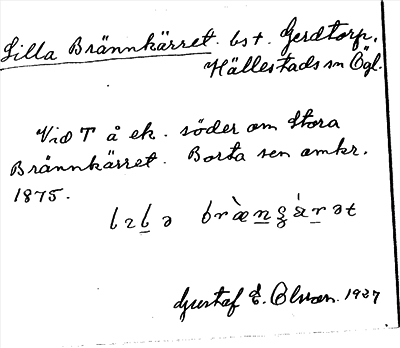 Lilla Brännkärret. bst. Gerdtorp.
Hällestads sn Ögl.
Vid T å ek. söder om Stora
Brännkärret. Borta sen omkr.
1875.
Gustaf E. Olsson. 1937